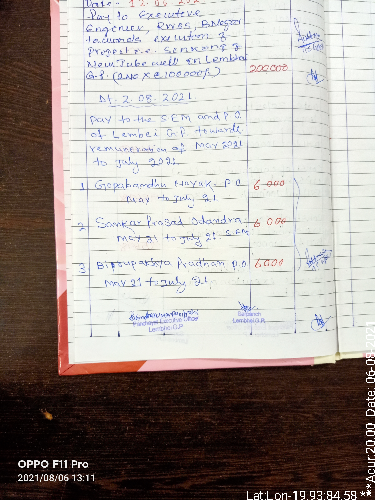 Pay to Executive
Engineer, RWSS,
towards execution of
Project i.e. Sinking of
New Tube well in Lembhei
G.P. (2NO X @ 100000/-) 200000
Dt. 2.08.2021
pay to the SEM and P.O
of Lembei G.P towards
remuneration of May 2021
to July 2021
1 Gopabandhu Nayak - P.O 6000
May to July 21
2 Sankar Prasad 6000
May 21 to July 21 - SEM
3 Birupakshya Pradhan P.O 6000
May 21 to July 21
Panchayat Executive Officer
Lembhei G.P.
Sarpanch
Lembhei G.P.
OPPO F11 Pro
2021/08/06 13:11
Lat:Lon-19.93:84.58***Acur:20.00, Date: 06-08-2021